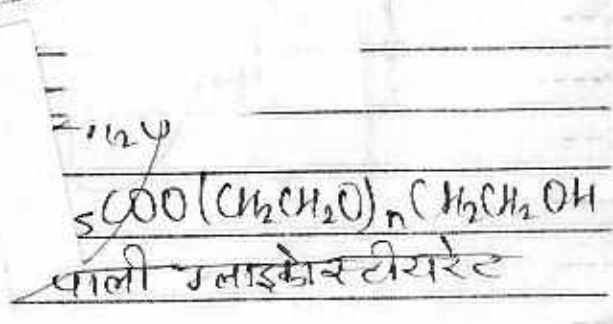 5COO(CH2CH2O)nCH2CH2OH
पाली ग्लाइकोस्टीयरेट